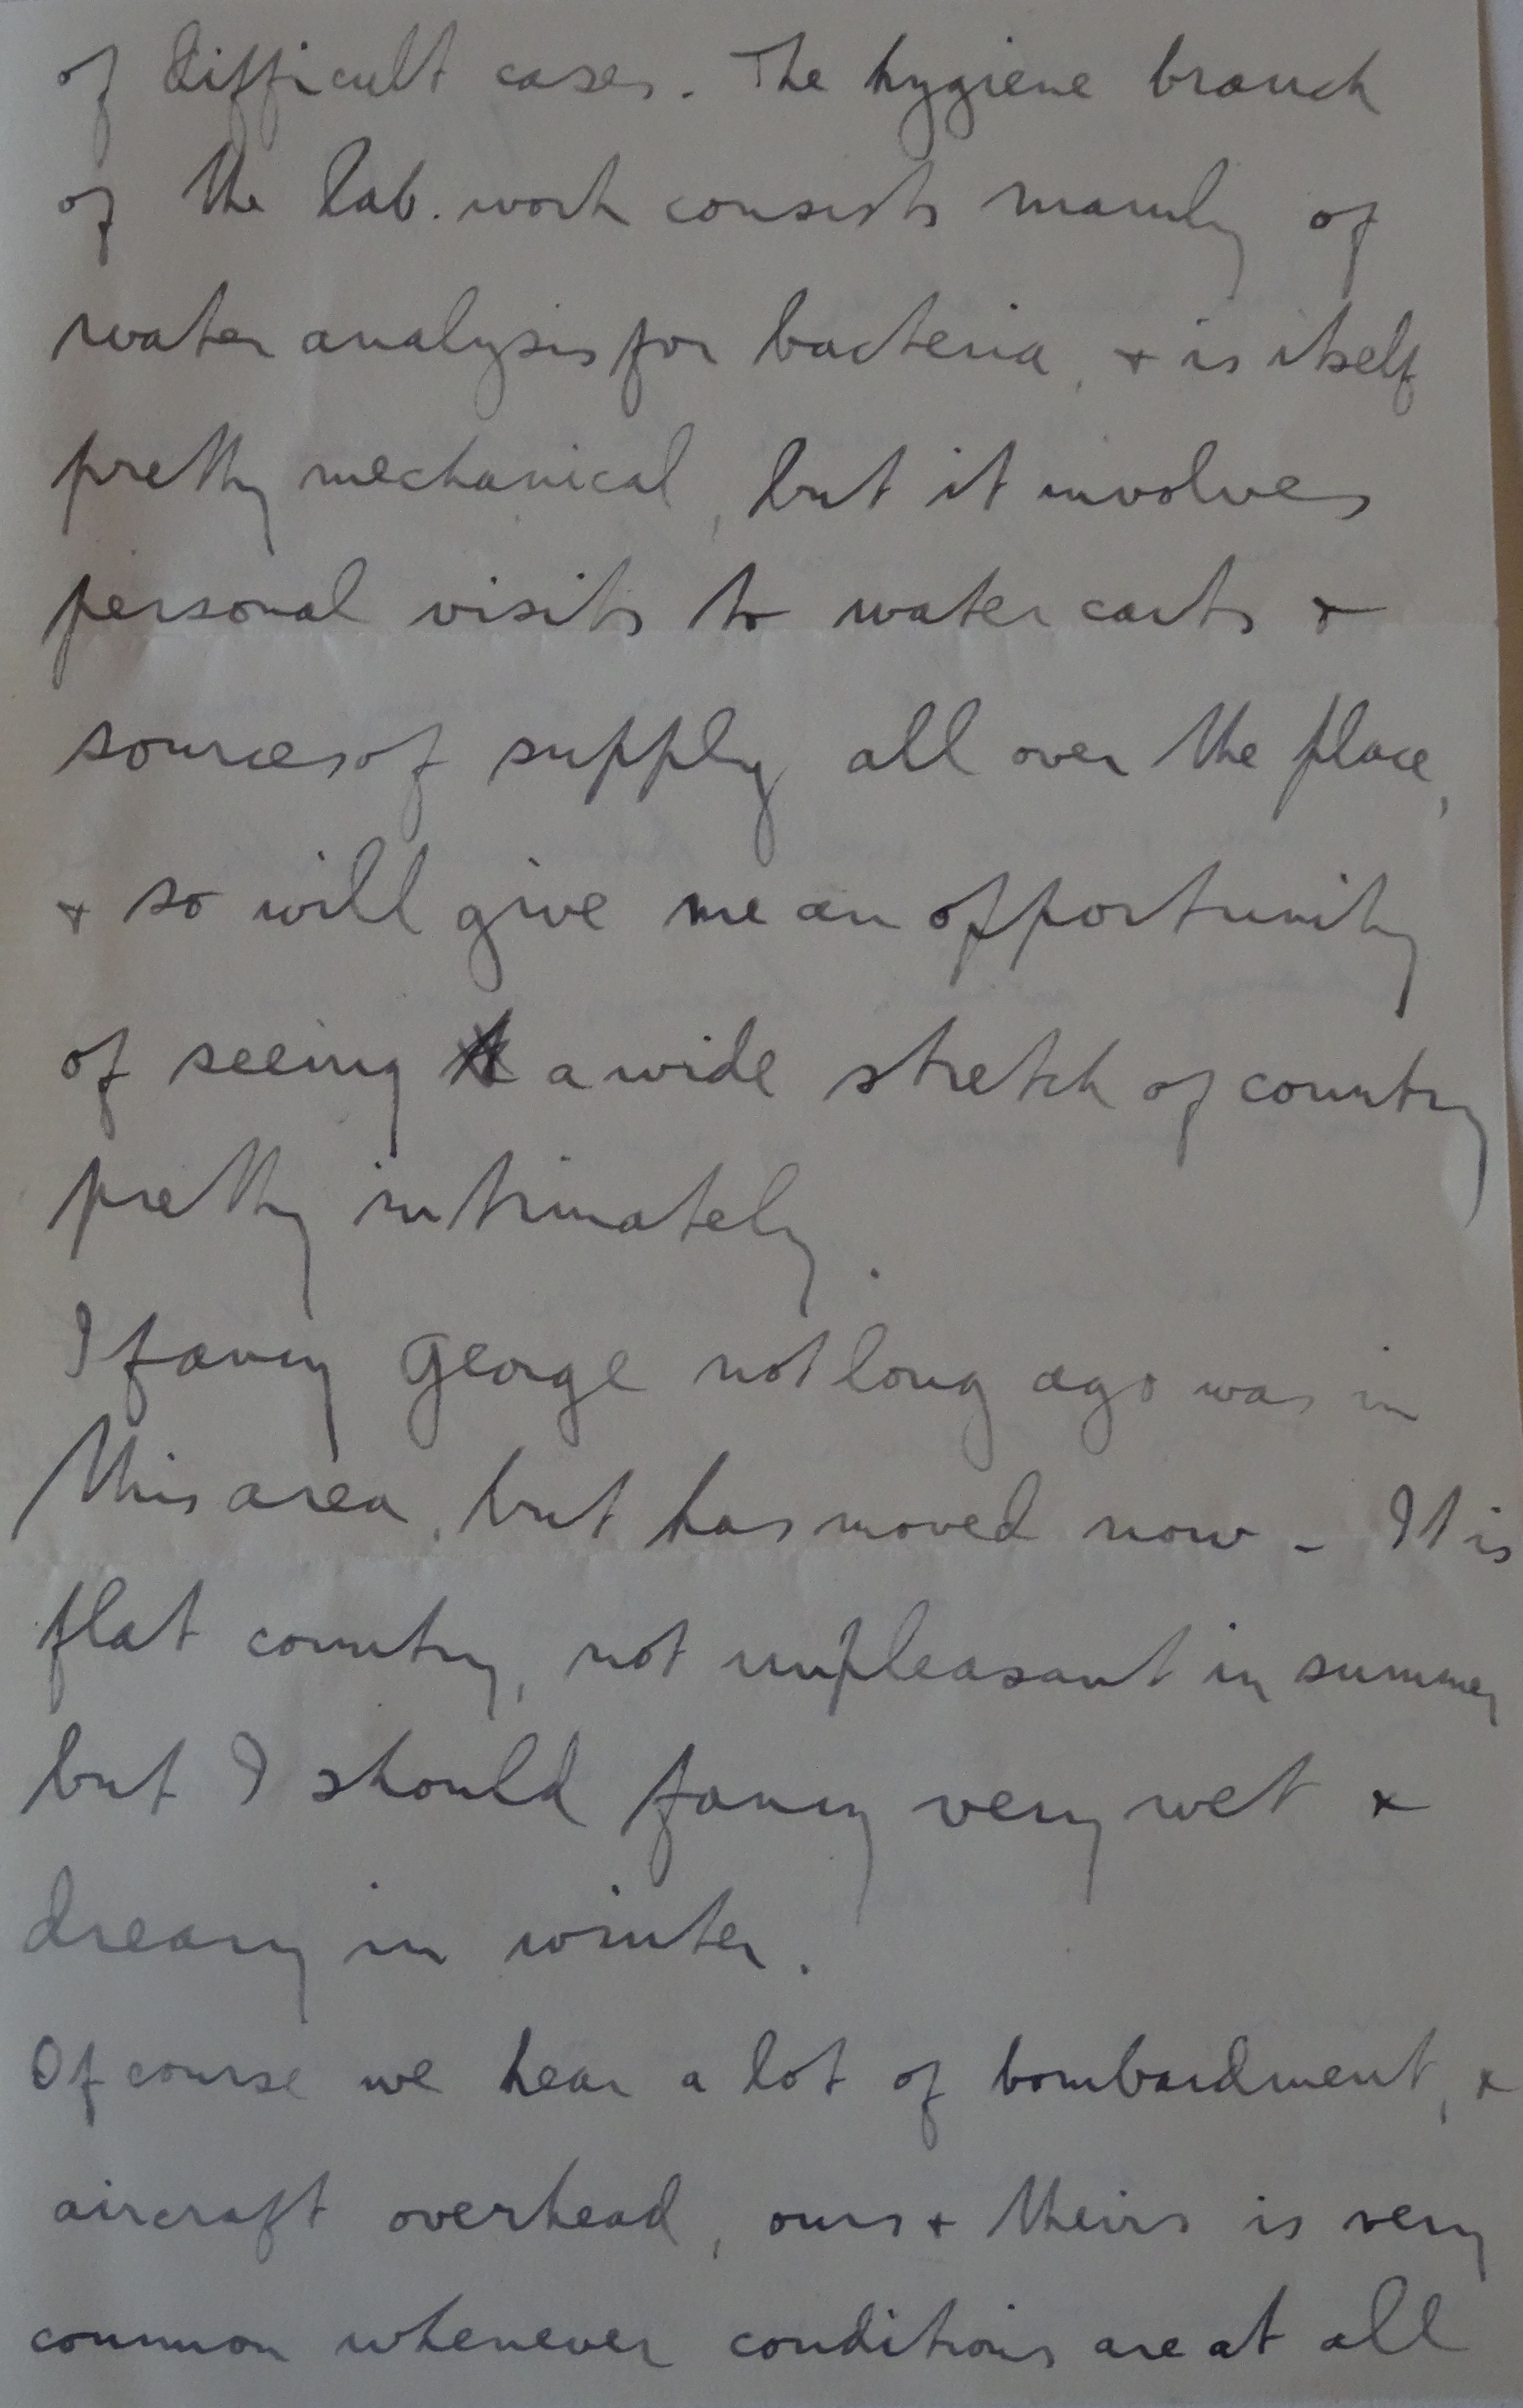 of difficult cases. The hygiene branch
of the lab. work consists mainly of
water analysis for bacteria, & is itself
pretty mechanical, but it involves
personal visits to water carts &
sources of supply all over the place,
& so will give me an opportunity
of seeing a wide stretch of country
pretty intimately.
I fancy George not long ago was in
this area, but has moved now - It is
flat country, not unpleasant in summer
but I should fancy very wet &
dreary in winter.
Of course we hear a lot of bombardment, &
aircraft overhead, ours & theirs is very
common whenever conditions are at all